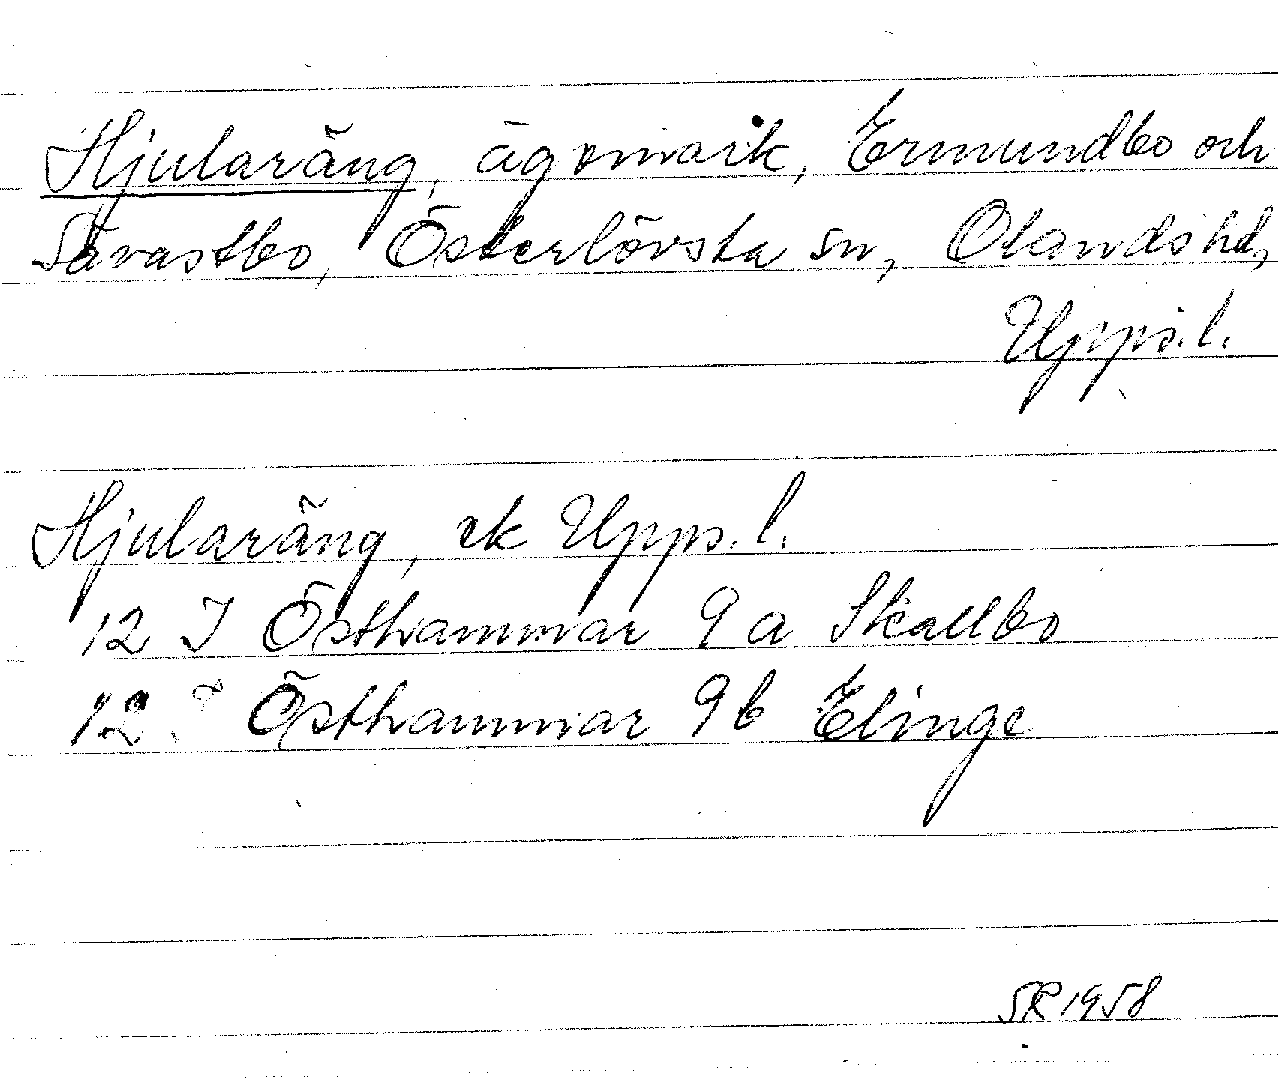 Hjularäng, ägomark, Ermundbo och
Tävastbo, Österlövsta sn, Olands hd,
Upps. l.
Hjularäng, ek Upps. l.
12 I Östhammar 9 a Skallbo
12 I Östhammar 9 b Elinge
SR 1958